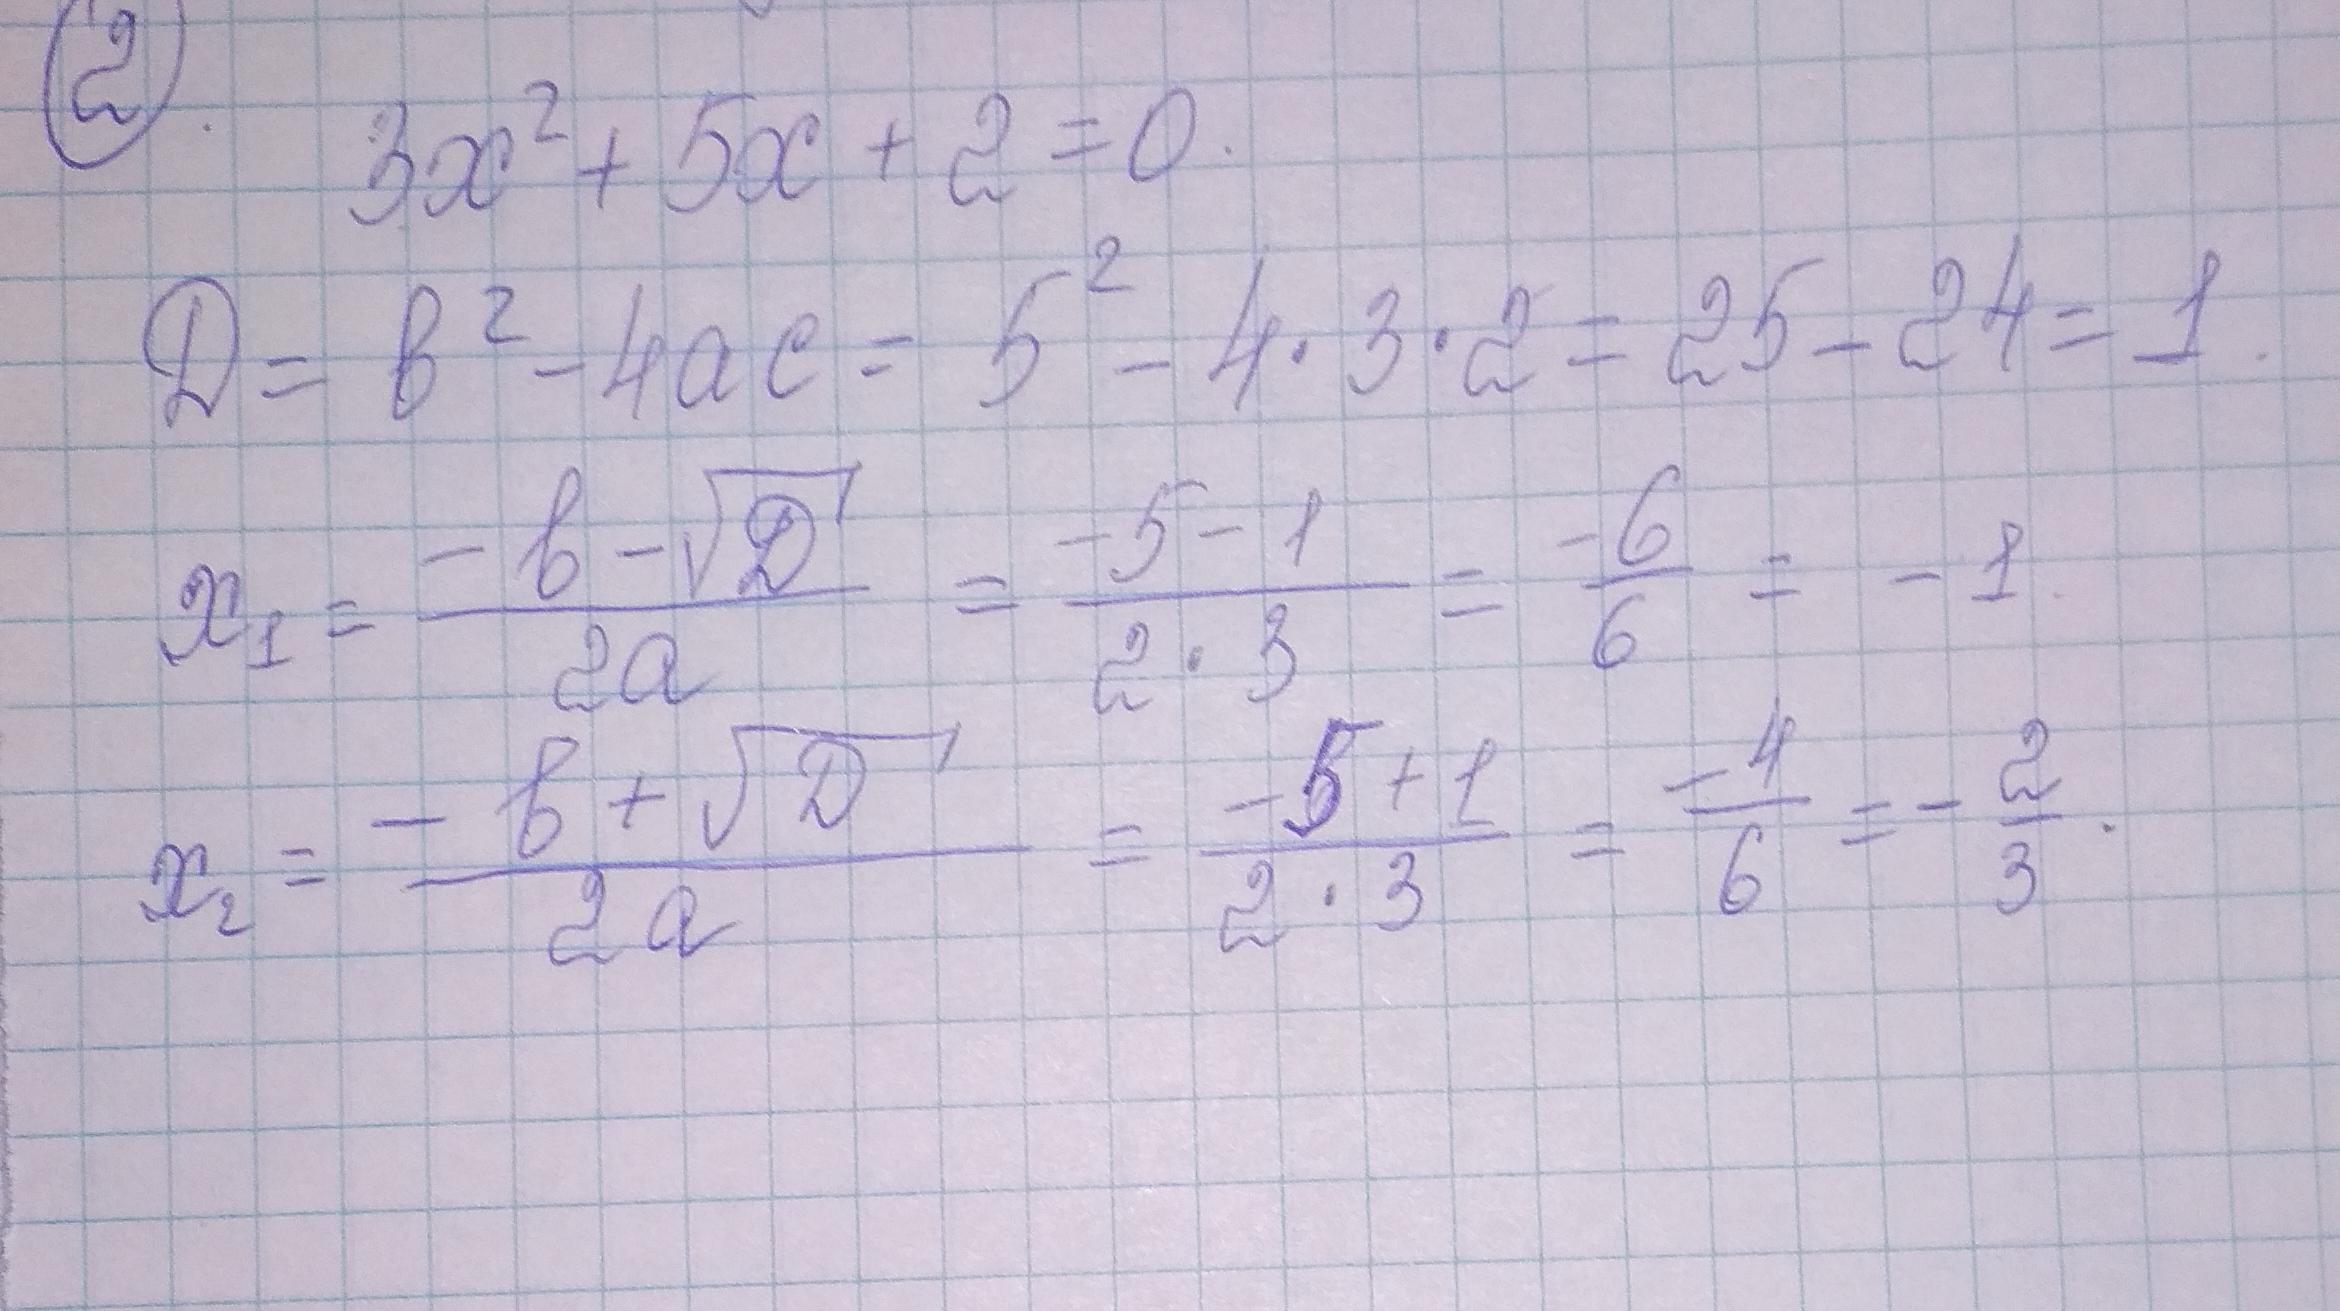 2.
3x² + 5x + 2 = 0.
D = b² - 4ac = 5² - 4·3·2 = 25 - 24 = 1.
x₁ = (-b - √D)/(2a) = (-5 - 1)/(2·3) = -6/6 = -1.
x₂ = (-b + √D)/(2a) = (-5 + 1)/(2·3) = -4/6 = -2/3.